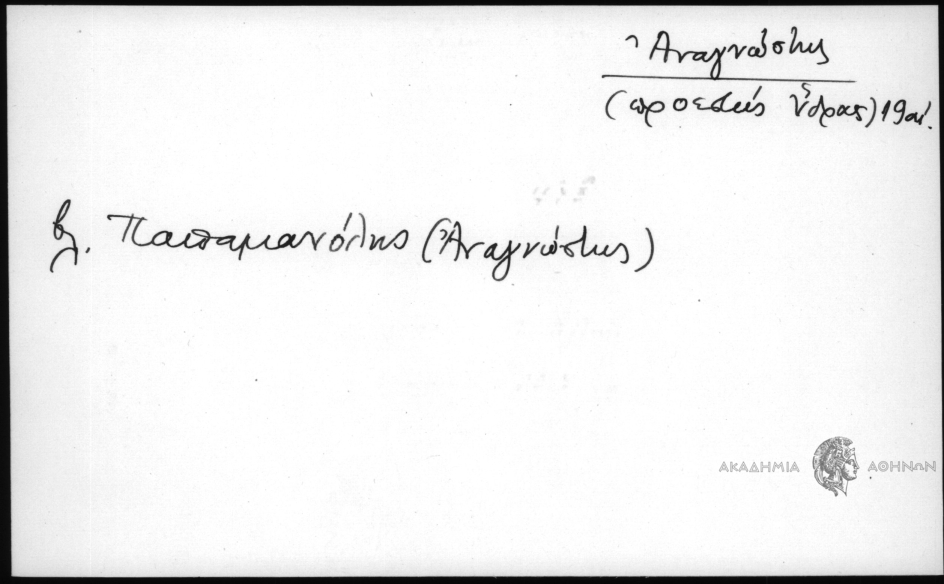 Ἀναγνώστης
(προεστώς Ὕδρας) 19 αἰ.
βλ. Παπαμανόλης (Ἀναγνώστης)
ΑΚΑΔΗΜΙΑ ΑΘΗΝΩΝ